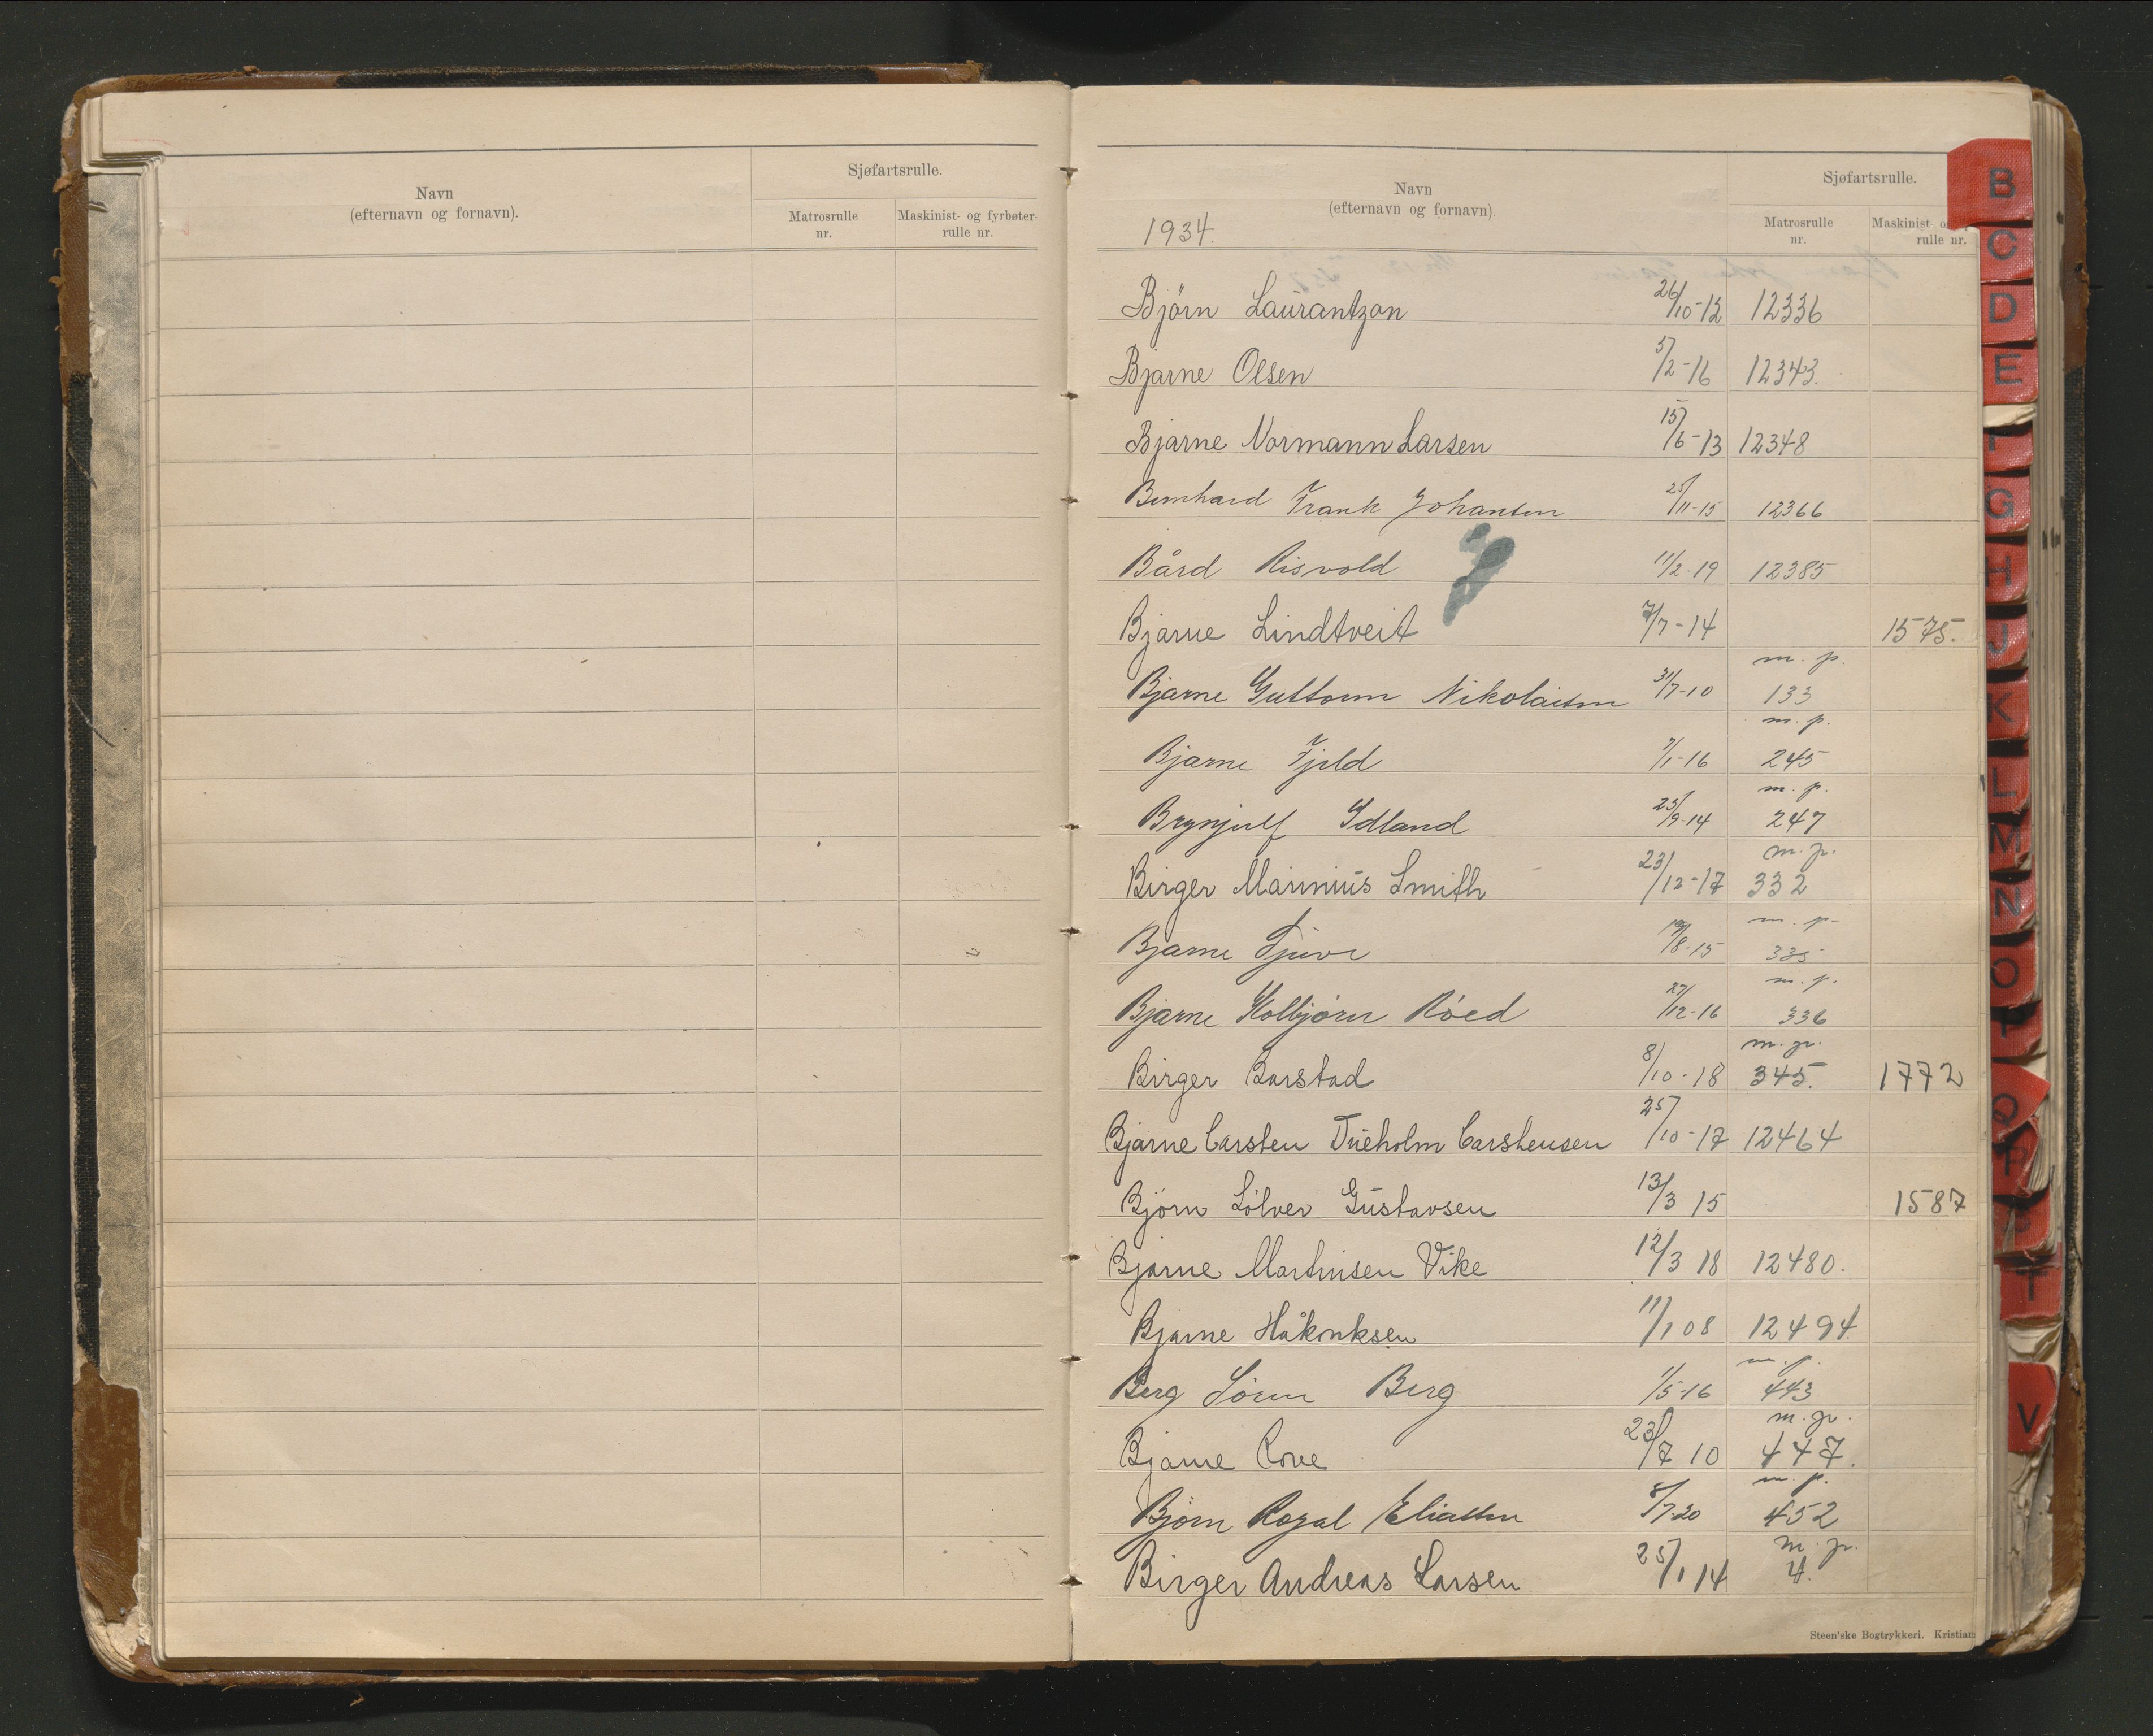 Navn
(efternavn og fornavn).
Sjøfartsrulle.
Matrosrulle
nr.
Maskinist- og fyrbøter-
rulle nr.
Navn
(efternavn og fornavn)
Sjøfartsrulle.
Matrosrulle
nr.
Maskinist- o
rulle nr.
1934.
Björn Laurantzon 26/10-12 12336
Bjarne Olsen 5/2-16 12343.
Bjarne Normann Larsen 15/6-13 12348
Bernhard Frank Johansen 25/11-15 12366
Bård Risvold 11/2-19 12385
Bjarne Lindtveit 7/7-14 1575.
m. p.
Bjarne Guttorm Nikolaisen 31/7-10 133
m. p.
Bjarne Fjeld 7/1-16 245
m. p.
Brynjulf Idland 25/9-14 247
m. p.
Birger Marinius Smith 23/12-17 332
m. p.
Bjarne Tjuve 19/8-15 335
m. p.
Bjarne Kolbjørn Róed 27/12-16 336
m. p.
Birger Barstad 8/10-18 345. 1772
Bjarne Carsten Tueholm Carstensen 25/10-17 12464
Bjørn Sólver Gustavsen 13/3 15 1587
Bjarne Martinsen Vike 12/3 18 12480.
Bjarne Håkonksen 11/1 08 12494.
m. p.
Berg Sören Berg 1/5-16 443
m. p.
Bjarne Rove 23/7 10 447.
m. p.
Bjørn Royal Eliassen 8/7-20 452
m. p.
Birger Andreas Larsen 25/1 14 4.
Steen'ske Bogtrykkeri. Kristian
B
C
D
E
G
H
J
K
L
M
N
O
P
Q
R
S
T
V